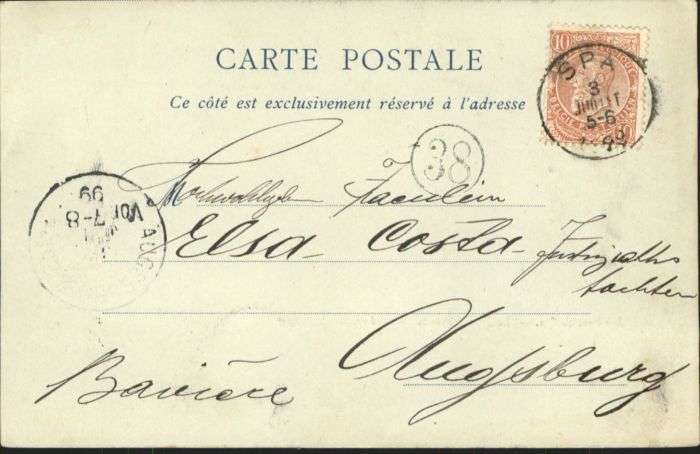 CARTE POSTALE
Ce côté est exclusivement réservé à l'adresse
10
SPA
3
JUILLET
5-6
99
38
Hochwohlgeb Fraeulein
Elsa Costa Justizraths
tochter
Augsburg
Bavière
AUG
VOR 7-8
99